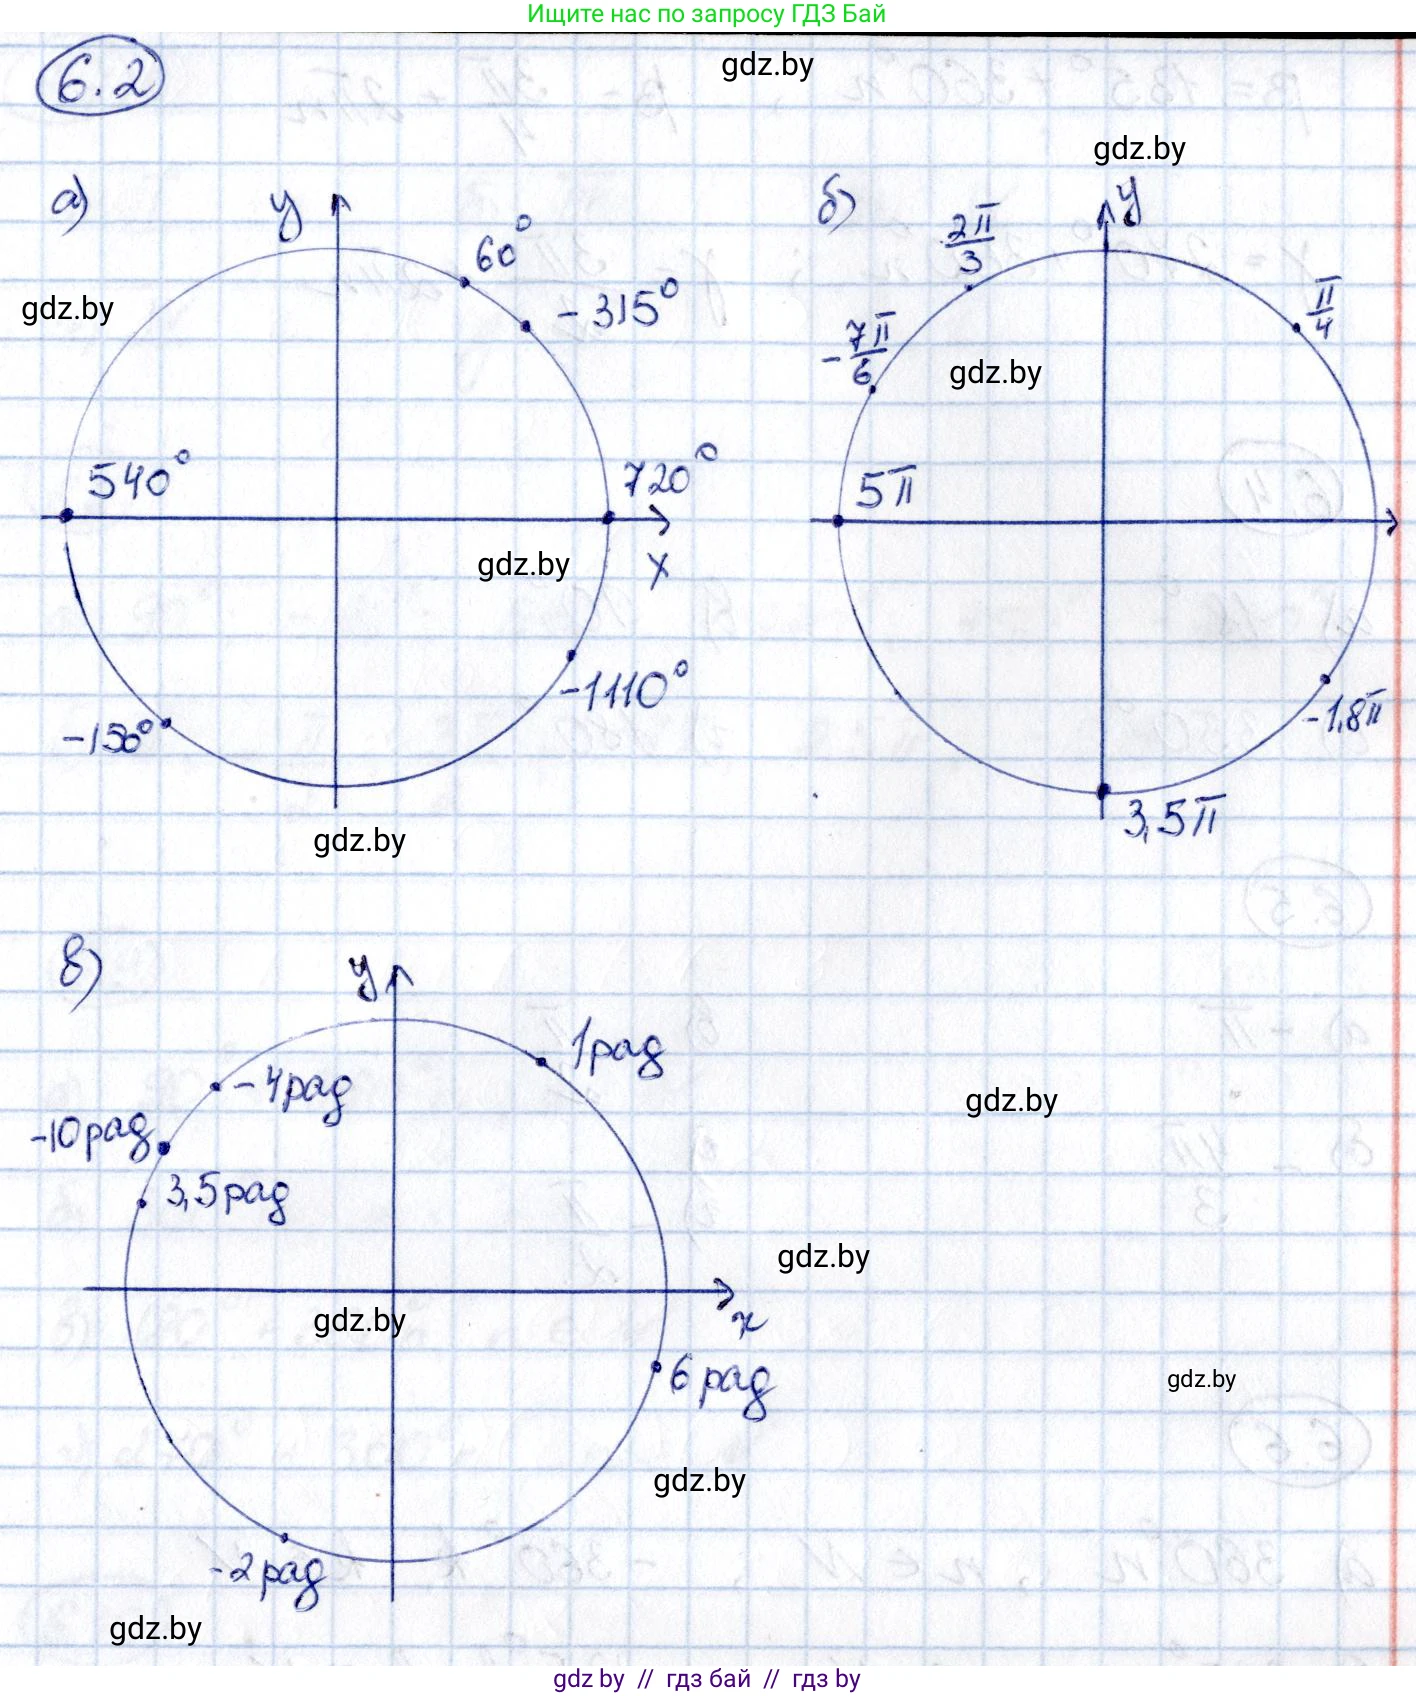 Ищите нас по запросу ГДЗ Бай
6.2
gdz.by
gdz.by
а)
y
60°
-315°
gdz.by
540°
720°
gdz.by
x
-1110°
-150°
gdz.by
б)
y
2π/3
π/4
-7π/6
gdz.by
5π
-1,8π
3,5π
в)
y
1рад
-4рад
-10рад
3,5рад
gdz.by
gdz.by
gdz.by
x
6 рад
gdz.by
gdz.by
-2рад
gdz.by
gdz by // гдз бай // гдз by